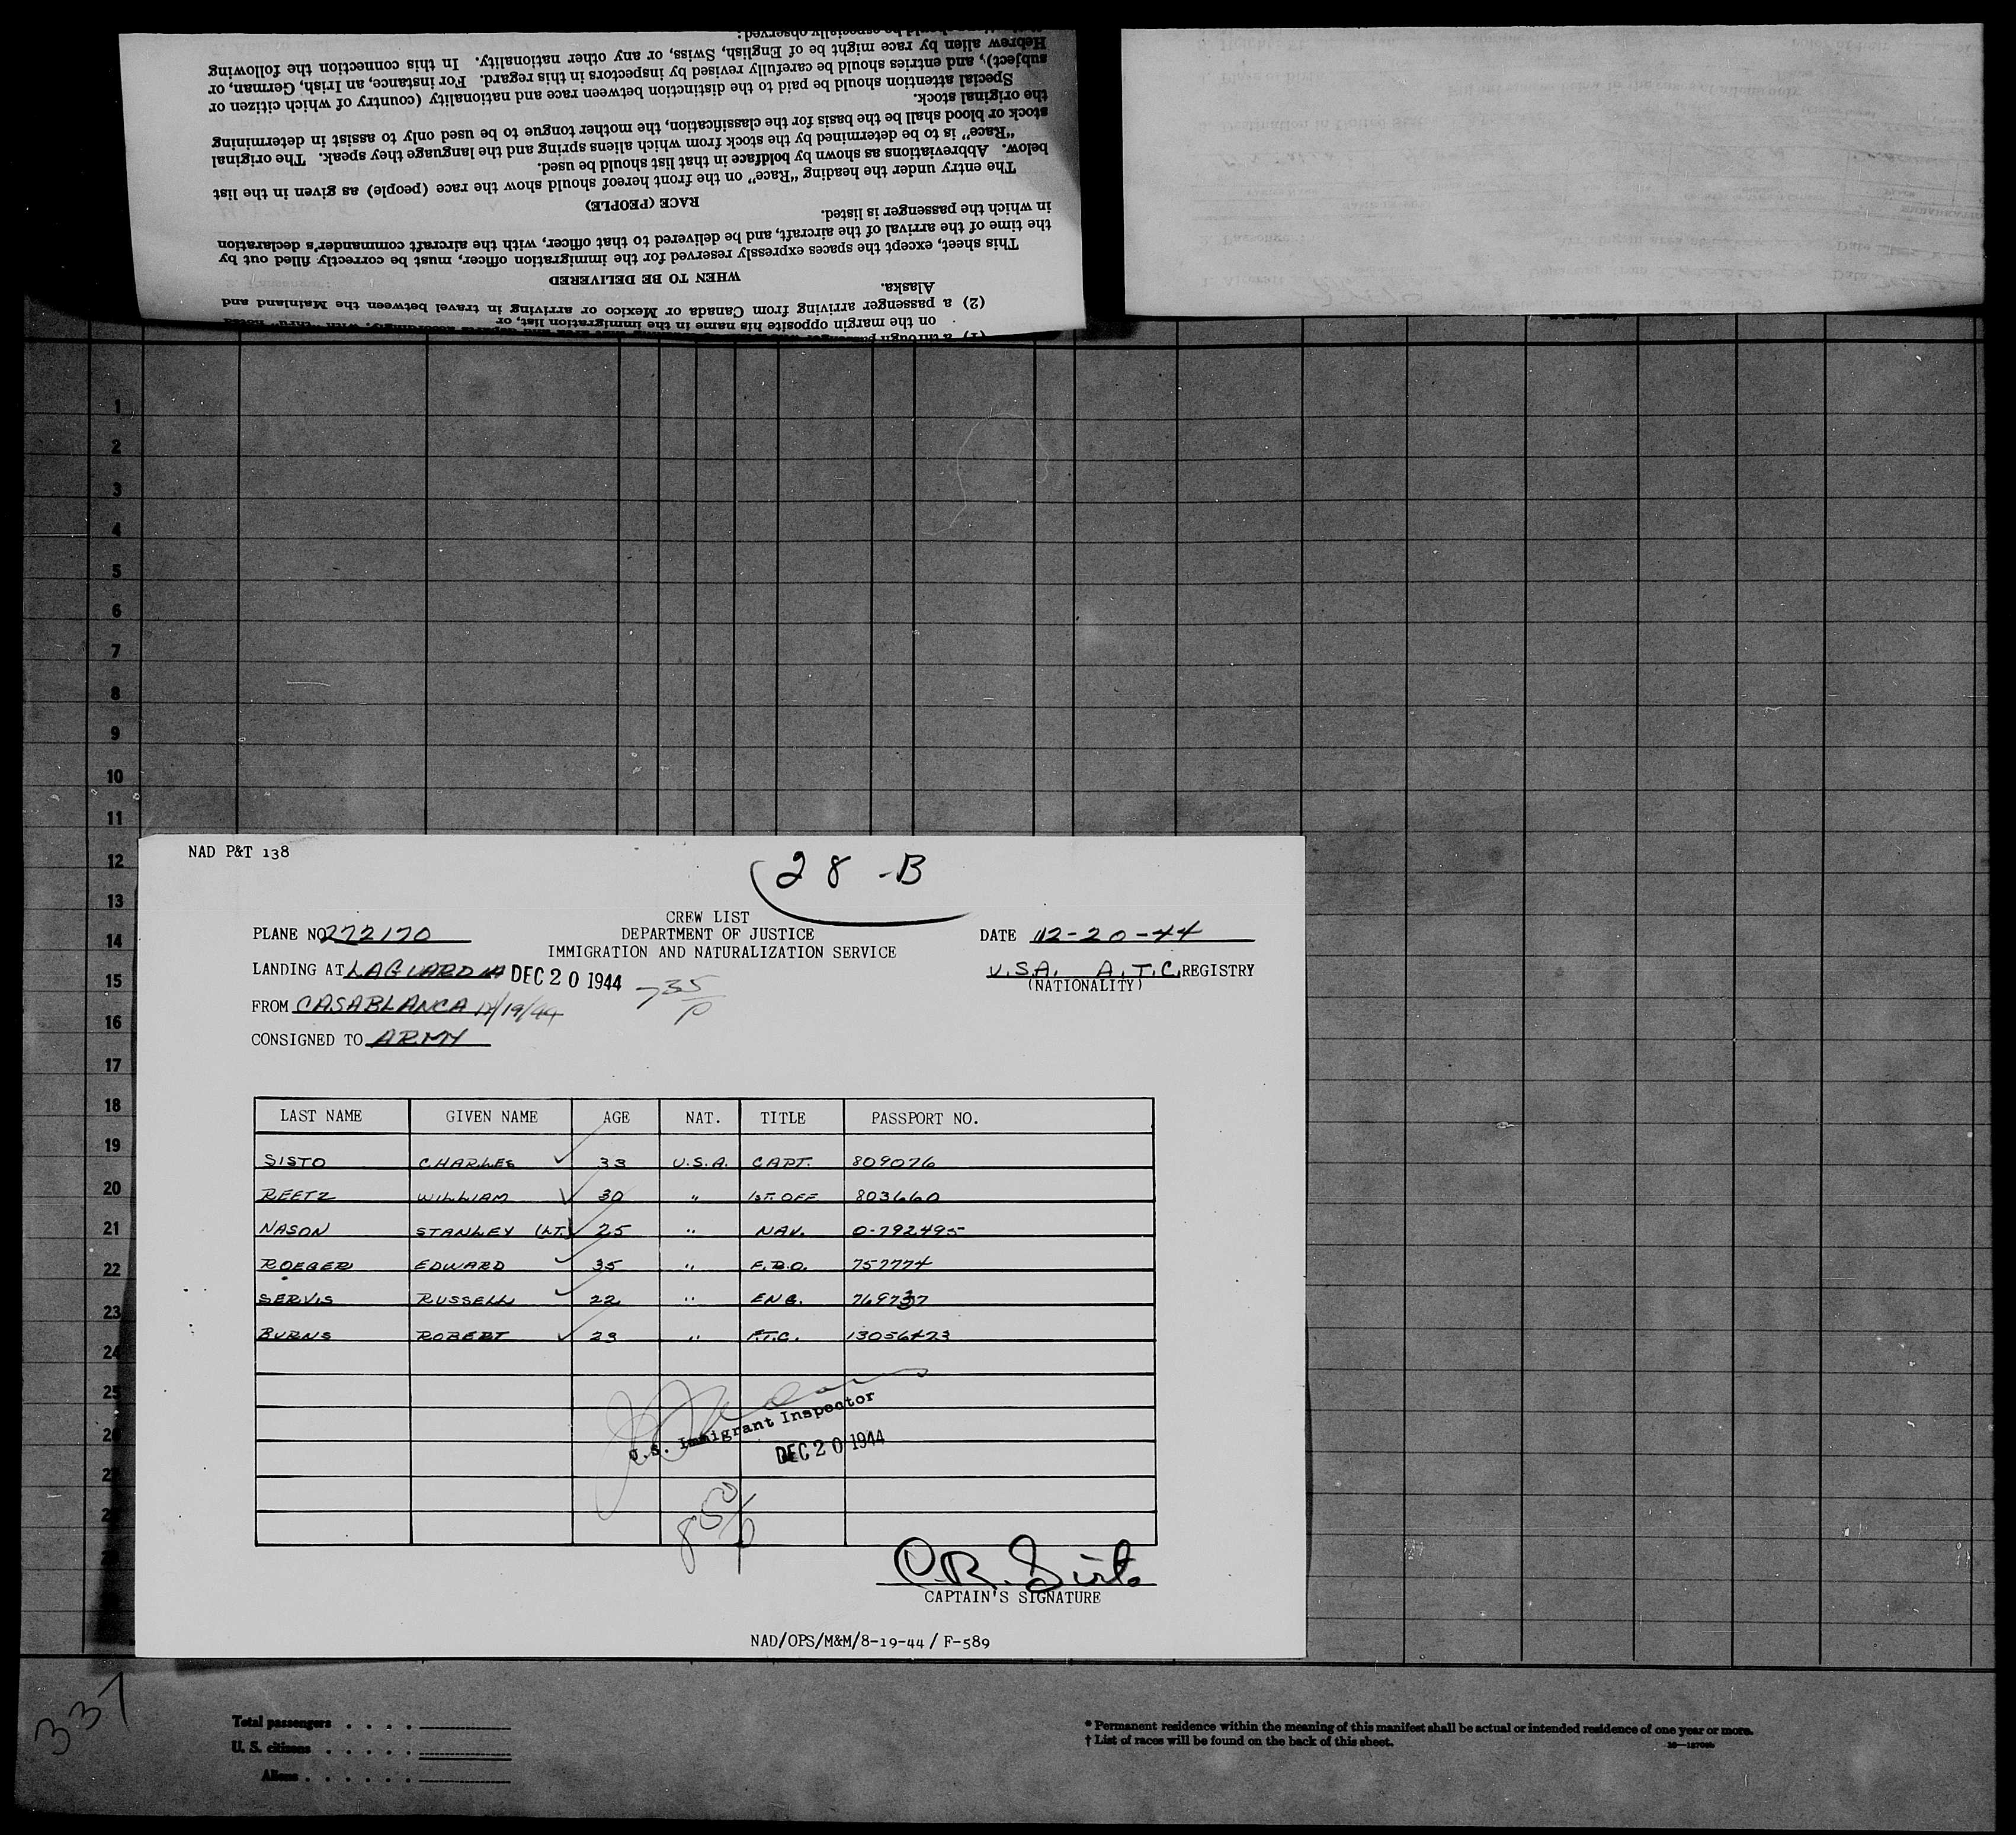 should be especially observed:
Hebrew alien by race might be of English, Swiss, or any other nationality. In this connection the following
subject), and entries should be carefully revised by inspectors in this regard. For instance, an Irish, German, or
Special attention should be paid to the distinction between race and nationality (country of which citizen or
the original stock.
stock or blood shall be the basis for the classification, the mother tongue to be used only to assist in determining
"Race" is to be determined by the stock from which aliens spring and the language they speak. The original
below. Abbreviations as shown by boldface in that list should be used.
The entry under the heading "Race" on the front hereof should show the race (people) as given in the list
RACE (PEOPLE)
in which the passenger is listed.
the time of the arrival of the aircraft, and be delivered to that officer, with the aircraft commander's declaration
This sheet, except the spaces expressly reserved for the immigration officer, must be correctly filled out by
WHEN TO BE DELIVERED
Alaska.
(2) a passenger arriving from Canada or Mexico or arriving in travel between the Mainland and
on the margin opposite his name in the immigration list, or
(1) a through
1
2
3
4
5
6
7
8
9
10
11
12
13
14
15
16
17
18
19
20
21
22
23
24
25
26
NAD P&T 138
28-B
CREW LIST
PLANE NO 272170 DEPARTMENT OF JUSTICE DATE 12-20-44
IMMIGRATION AND NATURALIZATION SERVICE
LANDING AT LAGUARDIA DEC 20 1944 735/P U.S.A. A.T.C. REGISTRY
(NATIONALITY)
FROM CASABLANCA 12/19/44
CONSIGNED TO ARMY
LAST NAME GIVEN NAME AGE NAT. TITLE PASSPORT NO.
SISTO CHARLES 33 U.S.A. CAPT. 809076
REETZ WILLIAM 30 " 1ST. OFF 803660
NASON STANLEY (LT.) 25 " NAV. O-792495
ROEGER EDWARD 35 " F.R.O. 757774
SERVIS RUSSELL 22 " ENG. 769737
BURNS ROBERT 23 " F.T.C. 13056423
U.S. Immigrant Inspector
DEC 20 1944
850/P
C.R. Sisto
CAPTAIN'S SIGNATURE
NAD/OPS/M&M/8-19-44/ F-589
337
Total passengers . . . .
U. S. citizens . . . . .
Aliens . . . . . .
* Permanent residence within the meaning of this manifest shall be actual or intended residence of one year or more.
† List of races will be found on the back of this sheet.